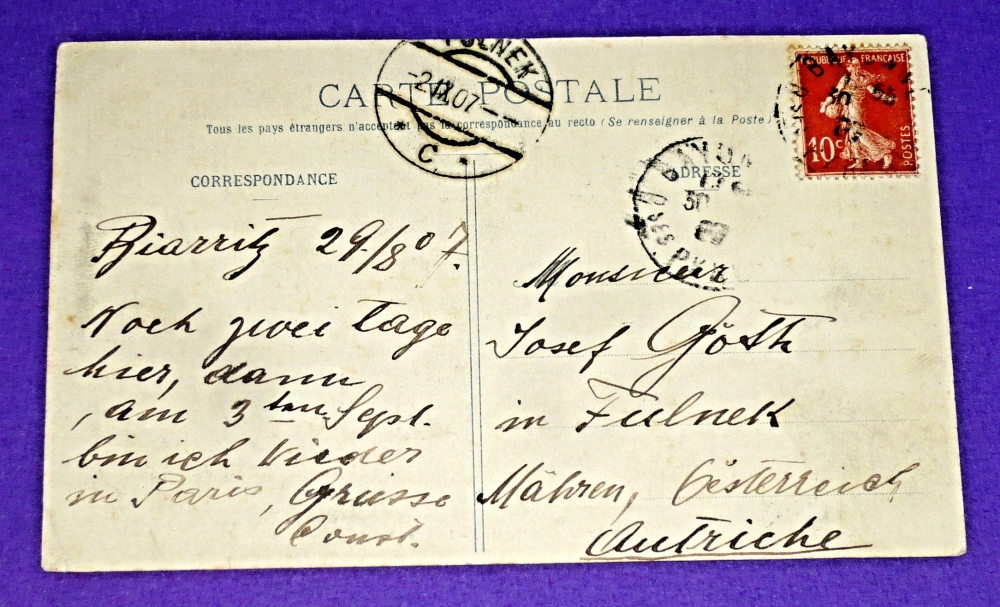 CARTE POSTALE
Tous les pays étrangers n'acceptent pas la correspondance au recto (Se renseigner à la Poste)
FULNEK
-2.IX.07-
* C *
REPUBLIQUE FRANÇAISE
10c
POSTES
CORRESPONDANCE
Biarritz 29./8 07.
Noch zwei Tage
hier, dann
, am 3ten Sept.
bin ich wieder
in Paris, Grüsse
Const.
ADRESSE
BAYON
30
Monsieur
Josef Göth
in Fulnek
Mähren, Oesterreich
Autriche